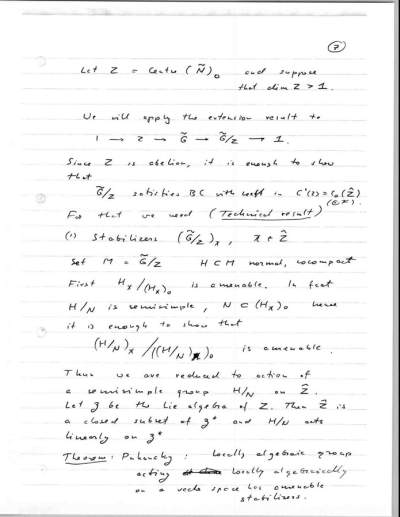 7
Let Z = Centre (Ñ)₀ and suppose
that dim Z > 1.
We will apply the extension result to
1 → Z → G̃ → G̃/Z → 1.
Since Z is abelian, it is enough to show
that
G̃/Z satisfies BC with coeff in C*(Z) = C₀(Ẑ)
(⊗ K).
For that we need (Technical result)
(1) Stabilizers (G̃/Z)ₓ, x ∈ Ẑ
Set M = G̃/Z H ⊂ M normal, cocompact
First Hₓ/(Hₓ)₀ is amenable. In fact
H/N is semisimple, N ⊂ (Hₓ)₀ hence
it is enough to show that
(H/N)ₓ/((H/N)ₓ)₀ is amenable.
Thus we are reduced to action of
a semisimple group H/N on Ẑ.
Let z be the Lie algebra of Z. Then Ẑ is
a closed subset of z* and H/N acts
linearly on z*
Theorem: Pukanszky: locally algebraic group
acting locally algebraically
on a vector space has amenable
stabilizers.